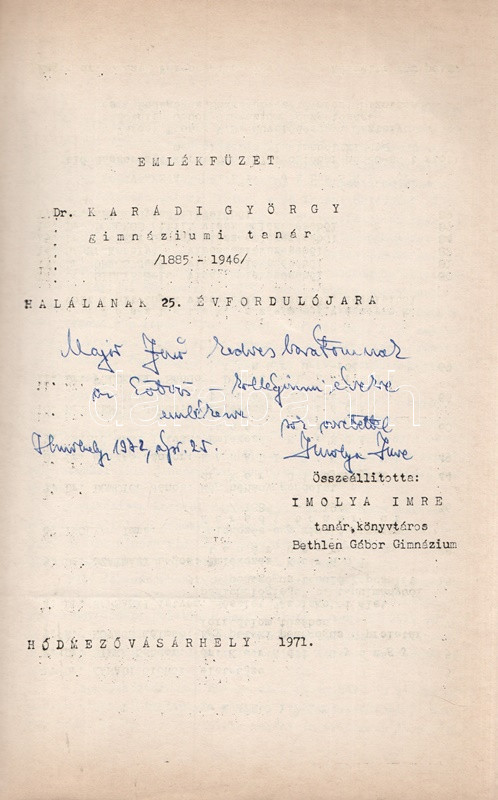 EMLÉKFÜZET
Dr. KARÁDI GYÖRGY
gimnáziumi tanár
/1885 - 1946/
HALÁLANAK 25. ÉVFORDULÓJARA
Major Jenő kedves barátomnak
az Eötvös - kollégiumi évekre
emlékezve
sok szeretettel
Hmvhely, 1972, ápr. 25.
Imolya Imre
Összeállitotta:
IMOLYA IMRE
tanár, könyvtáros
Bethlen Gábor Gimnázium
HÓDMEZŐVÁSÁRHELY 1971.
darabanth